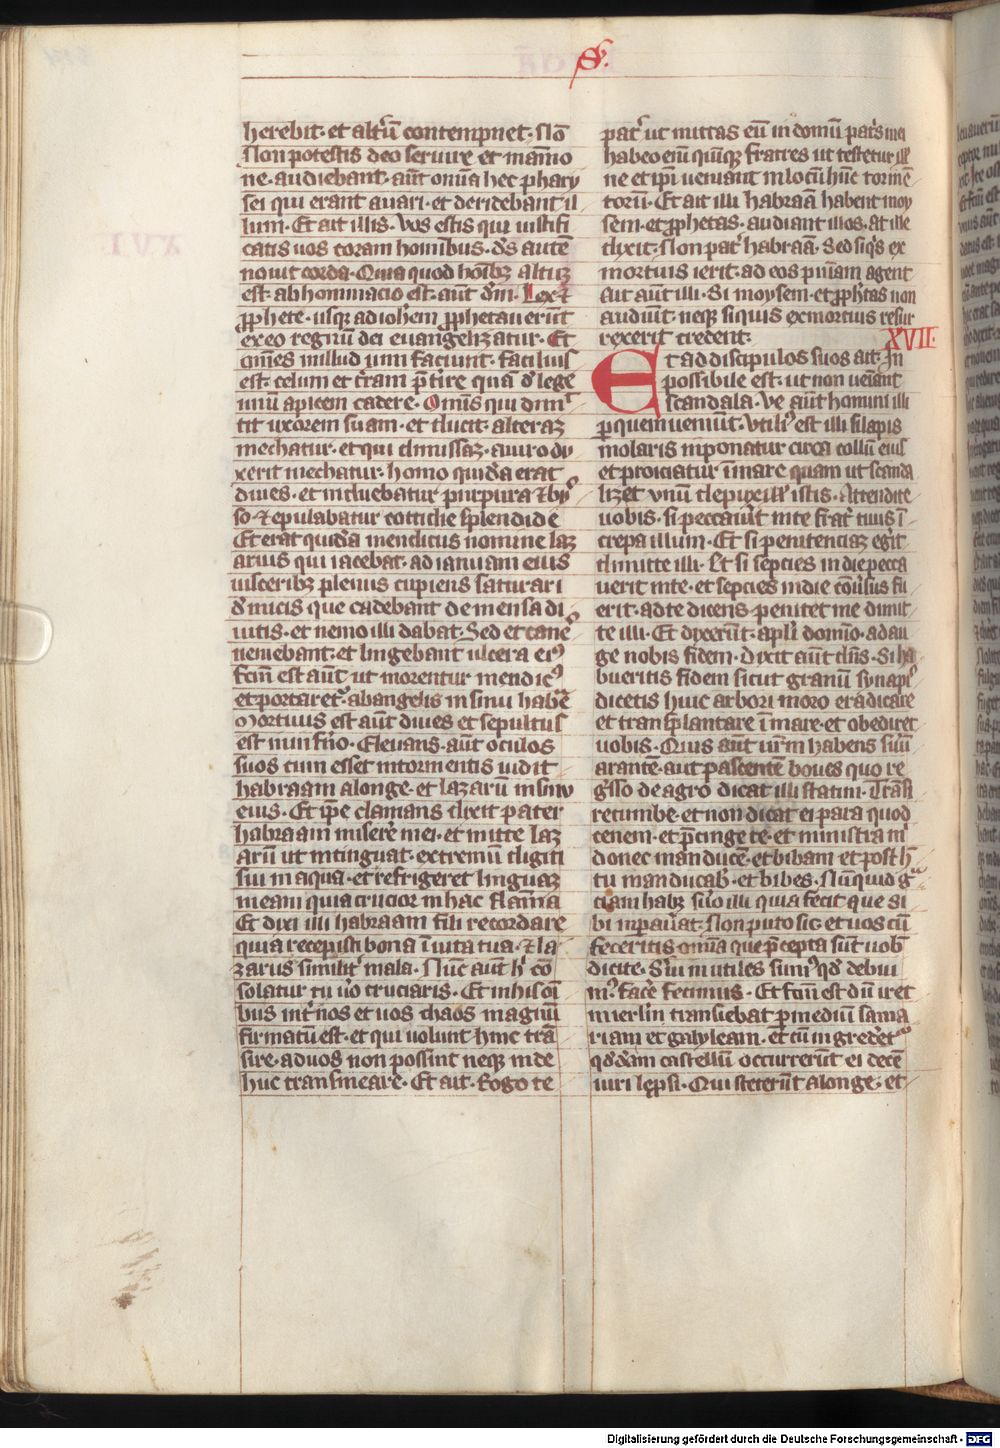 S.
herebit· et altū contempnet· Nō
Non potestis deo seruire et mamo
ne· audiebant· aūt omīa hec phary
sei qui erant auari· et deridebant il
lum· Et ait illis· Vos estis qui iustifi
catis uos coram homībus· ds autē
nouit corda· Quia quod hoībꝫ altuꝫ
est· abhominacio est· aūt dm̄· Lex ⁊
ꝓphete· usqꝫ ad ioh̄em ꝓphetauerūt
ex eo regnū dei euangelizatur· Et
om̄es in illud uim faciunt· facilius
est· celum et t̄ram p̄t̄ire quā de lege
unū apicem cadere· Omīs qui dim̄
tit uxorem suam· et ducit· alteraꝫ
mechatur· et qui dimissaꝫ· a uiro du
xerit mechatur· homo quidā erat
diues· et induebatur purpura ⁊ bys
so· ⁊ epulabatur cottidie splendide
Et erat quidā mendicus nomine laz
arus qui iacebat· ad ianuam eius
ulceribꝫ plenus cupiens saturari
de micis que cadebant de mensa di
uitis· et nemo illi dabat· Sed et canes
ueniebant· et lingebant ulcera eiꝰ
fcm̄ est aūt ut morerentur mendicꝰ
et portaretᷣ ab angelis in sinu habᷣe
Mortuus est aūt diues et sepultus
est in inferno· Eleuans· aūt oculos
suos cum esset in tormentis uidit
habraam a longe· et lazarū in sinu
eius· Et ip̄e clamans dixit pater
habraam misere mei· et mitte laz
arū ut intinguat· extremū digiti
sui in aqua· et refrigeret linguaꝫ
meam quia crucior in hac flāma
Et dixi illi habraam fili recordare
quia recepisti bona ī uita tua· ⁊ la
zarus similitᷣ mala· Nūc aūt hᷣ cō
solatur tu uō cruciaris· Et in his oī
bus intᷣ nos et uos chaos magnū
firmatū est· et qui uolunt hinc trā
sire· ad uos non possint neqꝫ inde
huc transmeare· Et ait· Rogo te
patᷣ ut mittas eū in domū patᷣs mei
habeo enī quīqꝫ fratres ut testetur ill
ne et ip̄i ueniant in locū hūc tormē
torū· Et ait illi habraā habent moy
sem· et ꝓphetas· audiant illos· at ille
dixit· Non patᷣ habraā· Sed siqᷣs ex
mortuis ierit· ad eos pn̄iam agent
Ait aūt illi· Si moysem· et ꝓphetas non
audiūt· neqꝫ si quis ex mortuis resur
rexerit credent·
XVII·
Et ad discipulos suos ait· In
possibile est· ut non ueiant
scandala· Ve aūt homini illi
ꝑ quem ueniūt· Vtiliꝰ est illi si lapis
molaris inponatur circa collū eius
et proiciatur ī mare quam ut scanda
lizet vnū de pixill istis· Attendite
uobis· si peccauᷣit in te fratᷣ tuus ī
crepa illum· Et si penitenciaꝫ egᷣit
dimitte illi· Et si sepcies in die pecca
uerit in te· et sepcies in die cōuᷣsus fu
erit· ad te dicens· penitet me dimit
te illi· Et dixerūt· apl̄i domīo· adau
ge nobis fidem· Dixit aūt dn̄s· Si ha
bueritis fidem sicut granū synapꝰ
dicetis huic arbori moro eradicare
et transplantare ī mare· et obediret
uobis· Quis aūt ur̄m habens suū
arantē· aut pascentē boues quo re
gᷣsso de agro dicat illi statim· Trāsi
recumbe· et non dicat ei para quod
cenem· et p̄cinge te· et ministra mᷣ
donec manducē· et bibam· et post hᷣ
tu manducabᷣ· et bibes· Nūquid gᷣ
ciam habꝫ suō illi quia fecit que si
bi inpauᷣat· Non puto sic· et uos cū
feceritis omīa que p̄cepta sūt uob
dicite· Sᷣui inutiles sumꝰ qd̄ debui
mꝰ· facᷣe fecimus· Et fcm̄ est dū iret
in ierlm̄ transiebat ꝑ mediū sama
riam et galyleam· et cū ingredᷣetᷣ
qd̄dam castellū occurrerūt ei decē
uiri lepsi· Qui steterūt a longe· et
Digitalisierung gefördert durch die Deutsche Forschungsgemeinschaft - DFG